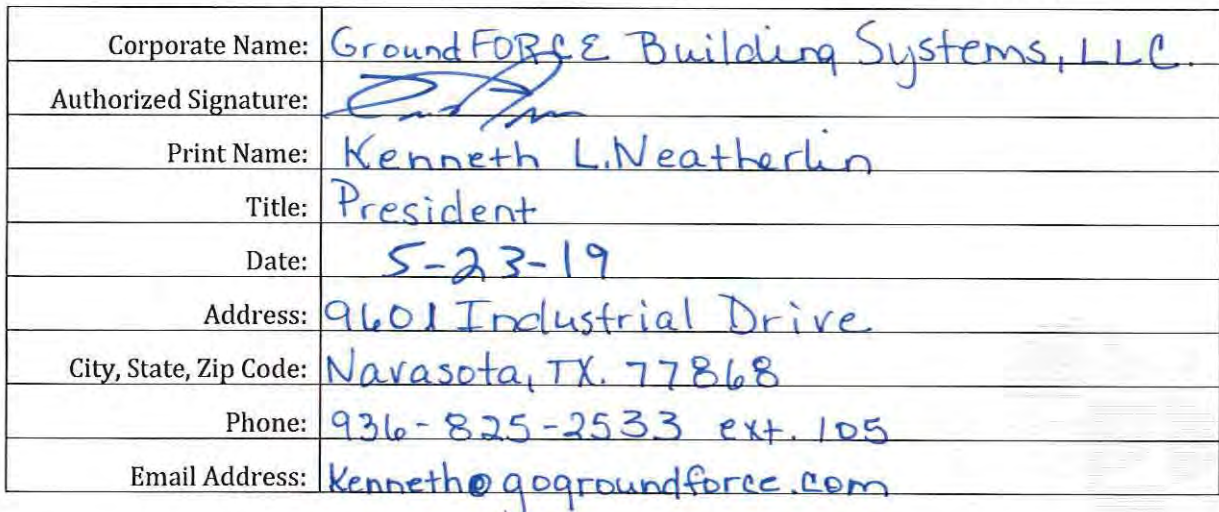 Corporate Name: GroundFORCE Building Systems, LLC.
Authorized Signature:
Print Name: Kenneth L. Neatherlin
Title: President
Date: 5-23-19
Address: 9601 Industrial Drive
City, State, Zip Code: Navasota, TX. 77868
Phone: 936-825-2533 ext. 105
Email Address: Kenneth@gogroundforce.com